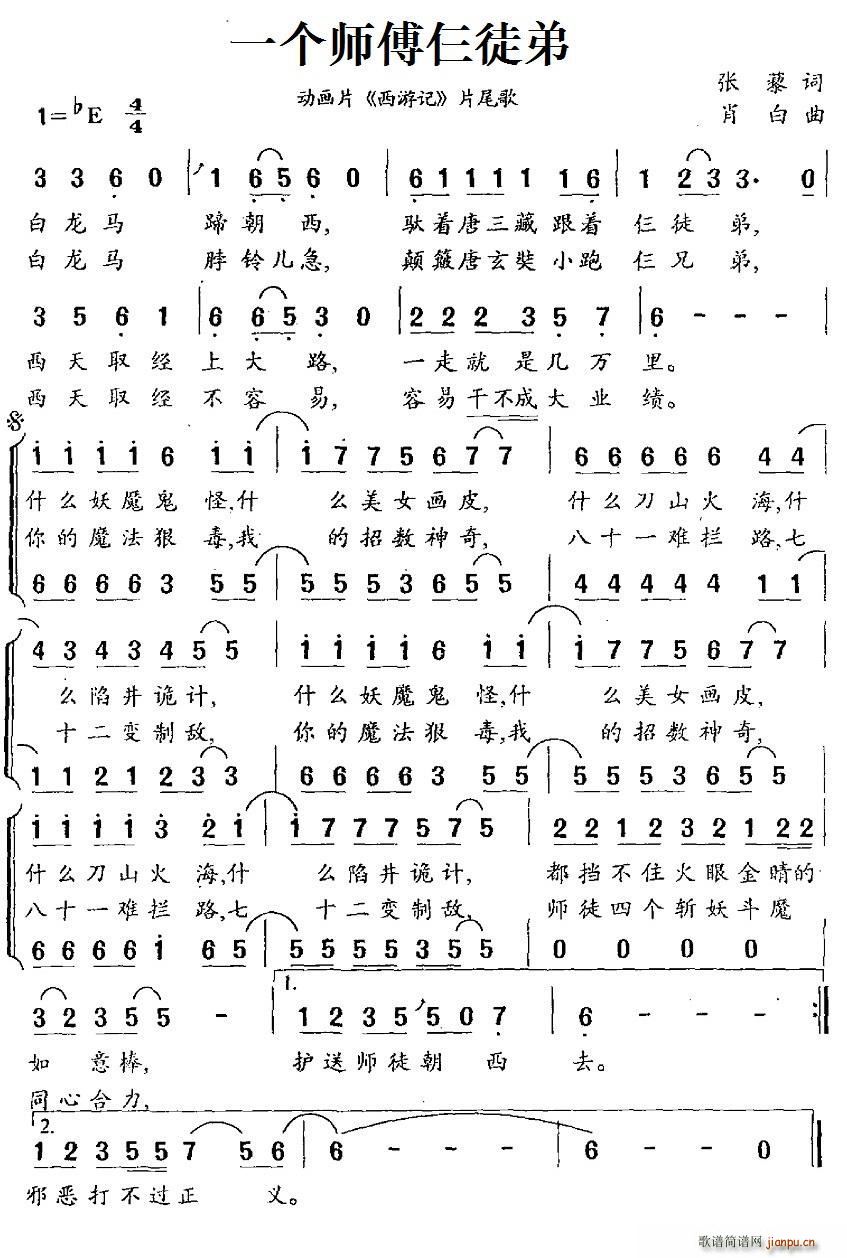 一个师傅仨徒弟
动画片《西游记》片尾歌
张藜 词
肖白 曲
1=♭E 4/4
3 3 6 0 | 1 6 5 6 0 | 6 1 1 1 1 1 6 | 1 2 3 3· 0 |
白龙马 蹄朝西, 驮着唐三藏跟着 仨徒弟,
白龙马 脖铃儿急, 颠簸唐玄奘小跑 仨兄弟,
3 5 6 1 | 6 6 5 3 0 | 2 2 2 3 5 7 | 6 - - - |
西天取经 上大路, 一走就是几万里。
西天取经 不容易, 容易干不成大业绩。
1 1 1 1 6 1 1 | 1 7 7 5 6 7 7 | 6 6 6 6 6 4 4 |
什么妖魔鬼怪,什 么美女画皮, 什么刀山火海,什
你的魔法狠毒,我 的招数神奇, 八十一难拦路,七
6 6 6 6 3 5 5 | 5 5 5 3 6 5 5 | 4 4 4 4 4 1 1 |
4 3 4 3 4 5 5 | 1 1 1 1 6 1 1 | 1 7 7 5 6 7 7 |
么陷井诡计, 什么妖魔鬼怪,什 么美女画皮,
十二变制敌, 你的魔法狠毒,我 的招数神奇,
1 1 2 1 2 3 3 | 6 6 6 6 3 5 5 | 5 5 5 3 6 5 5 |
1 1 1 1 3 2 1 | 1 7 7 7 5 7 5 | 2 2 1 2 3 2 1 2 2 |
什么刀山火海,什 么陷井诡计, 都挡不住火眼金晴的
八十一难拦路,七 十二变制敌, 师徒四个斩妖斗魔
6 6 6 6 1 6 5 | 5 5 5 5 3 5 5 | 0 0 0 0 |
1.
3 2 3 5 5 - | 1 2 3 5 5 0 7 | 6 - - - :|
如意棒, 护送师徒朝西 去。
同心合力,
2.
1 2 3 5 5 7 5 6 | 6 - - - | 6 - - 0 ‖
邪恶打不过正义。
歌谱简谱网
jianpu.cn